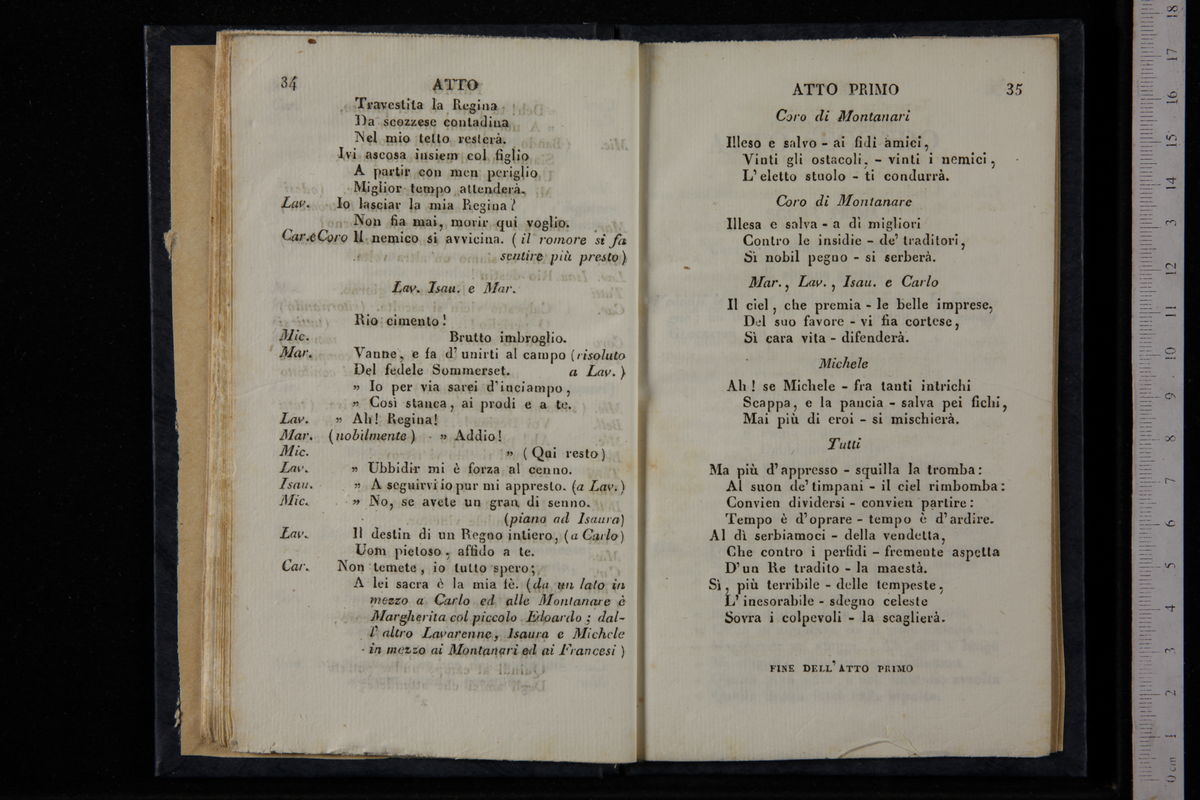 34 ATTO
Travestita la Regina
Da scozzese contadina
Nel mio tetto resterà.
Ivi ascosa insiem col figlio
A partir con men periglio
Miglior tempo attenderà.
Lav. Io lasciar la mia Regina!
Non fia mai, morir qui voglio.
Car. e Coro Il nemico si avvicina. (il romore si fa
sentire più presto)
Lav. Isau. e Mar.
Rio cimento!
Mic. Brutto imbroglio.
Mar. Vanne, e fa d'unirti al campo (risoluto
Del fedele Sommerset. a Lav.)
„ Io per via sarei d'inciampo,
„ Così stanca, ai prodi e a te.
Lav. „ Ah! Regina!
Mar. (nobilmente) „ Addio!
Mic. „ (Qui resto)
Lav. „ Ubbidir mi è forza al cenno.
Isau. „ A seguirvi io pur mi appresto. (a Lav.)
Mic. „ No, se avete un gran di senno.
(piano ad Isaura)
Lav. Il destin di un Regno intiero, (a Carlo)
Uom pietoso, affido a te.
Car. Non temete, io tutto spero;
A lei sacra è la mia fè. (da un lato in
mezzo a Carlo ed alle Montanare è
Margherita col piccolo Edoardo; dal-
l'altro Lavarenne, Isaura e Michele
in mezzo ai Montanari ed ai Francesi)
ATTO PRIMO 35
Coro di Montanari
Illeso e salvo - ai fidi amici,
Vinti gli ostacoli, - vinti i nemici,
L'eletto stuolo - ti condurrà.
Coro di Montanare
Illesa e salva - a dì migliori
Contro le insidie - de' traditori,
Sì nobil pegno - si serberà.
Mar., Lav., Isau. e Carlo
Il ciel, che premia - le belle imprese,
Del suo favore - vi fia cortese,
Sì cara vita - difenderà.
Michele
Ah! se Michele - fra tanti intrichi
Scappa, e la pancia - salva pei fichi,
Mai più di eroi - si mischierà.
Tutti
Ma più d'appresso - squilla la tromba:
Al suon de' timpani - il ciel rimbomba:
Convien dividersi - convien partire:
Tempo è d'oprare - tempo è d'ardire.
Al dì serbiamoci - della vendetta,
Che contro i perfidi - fremente aspetta
D'un Re tradito - la maestà.
Sì, più terribile - delle tempeste,
L'inesorabile - sdegno celeste
Sovra i colpevoli - la scaglierà.
FINE DELL'ATTO PRIMO
0 cm 1 2 3 4 5 6 7 8 9 10 11 12 13 14 15 16 17 18